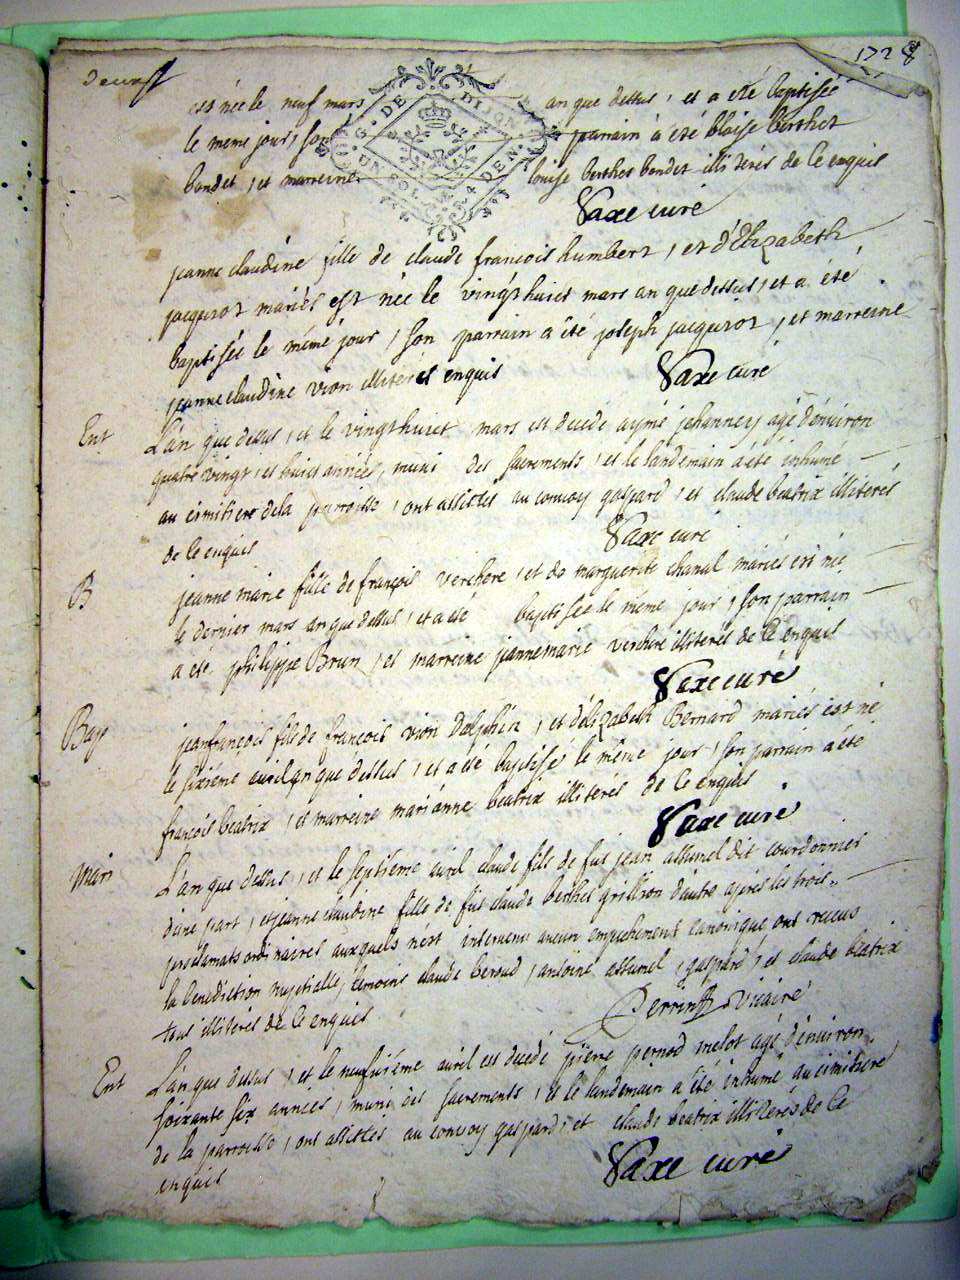 1728
est née le neuf mars an que dessus, et a été baptisée
G. DE DIJON
UN SOL 4 DEN
le meme jour, son parrain à été blaise berthet
bondet, et marreine louise berthet bondet illiterés de ce enquis
Saxe curé
jeanne claudine fille de claude françois humbert, et d'Elizabeth
jacquot mariés est née le vingthuict mars an que dessus, et a été
baptisée le même jour, son parrain a été joseph jacquot, et marreine
jeanne claudine vion illiterés enquis
Saxe curé
Ent
L'an que dessus, et le vingthuict mars est decedé aymé jehanney agé d'environ
quatre vingt, et huict années, muni des sacrements, et le landemain a été inhumé
au cimitiere de la parroisse, ont assistés au convoy gaspard, et claude beatrix illiterés
de ce enquis
Saxe curé
B
jeanne marie fille de françois verchere, et de marguerite chanal mariés est née
le dernier mars an que dessus, et a été baptisée le meme jour, son parrain
a été philippe Brun, et marreine jeanne marie verchere illiterés de ce enquis
Saxe curé
Bap
jeanfrancois fils de francois vion dalphin, et d'élizabeth Bernard mariés est né
le sixiéme avril an que dessus, et a été baptisé le même jour, son parrain a été
françois beatrix, et marreine marianne beatrix illiterés de ce enquis
Saxe curé
Mari
L'an que dessus, et le septiéme avril claude fils de fut jean assunel dit courdonnier
d'une part, et jeanne claudine fille de fut claude berthet grillion d'autre apres les trois
proclamats ordinaires auxquels n'est intervenu aucun empechement canonique ont receus
la benediction nuptielle, temoins claude beroud, antoine assunel, gaspard, et claude beatrix
tous illiterés de ce enquis
Perrin Vicaire
Ent
L'an que dessus, et le neufviéme avril est decedé piere pernod melot agé d'environ
soixante six années, muni des sacrements, et le landemain a été inhumé au cimitiere
de la parroisse, ont assistés au convoy gaspard, et claude beatrix illiterés de ce
enquis
Saxe curé